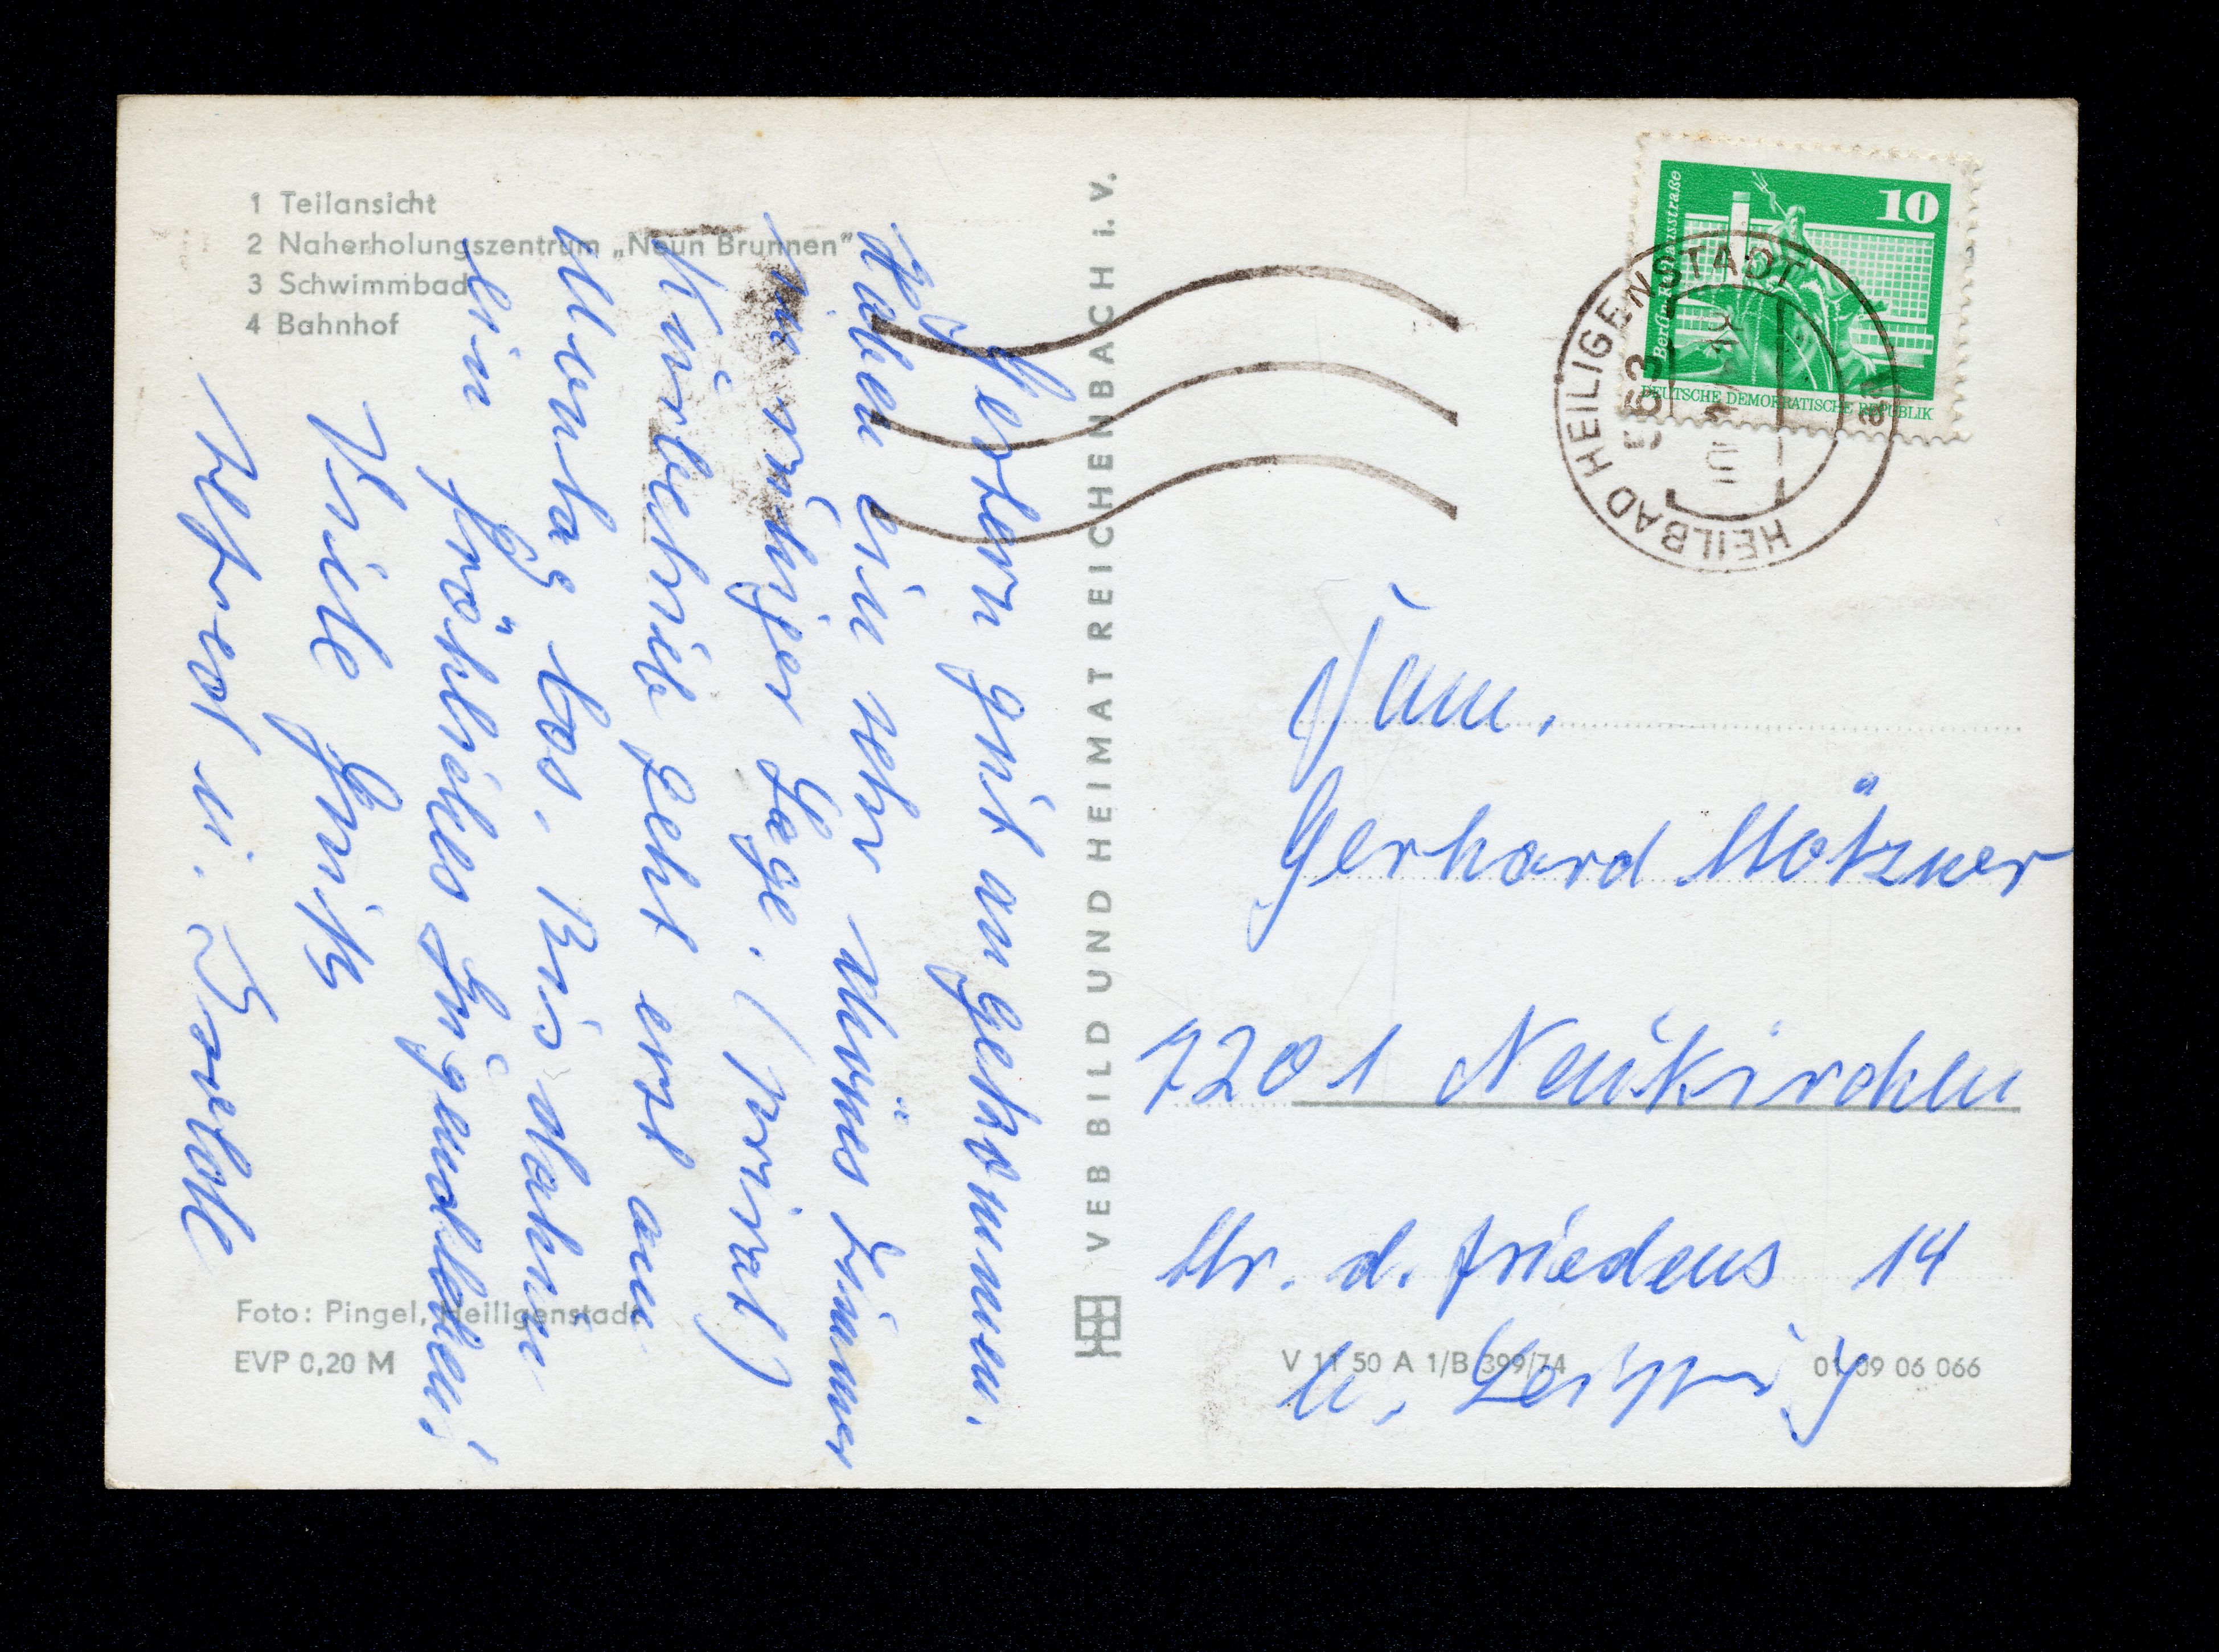 1 Teilansicht
2 Naherholungszentrum „Neun Brunnen"
3 Schwimmbad
4 Bahnhof
Gestern gut angekommen.
Haben ein sehr schönes Zimmer
in ruhiger Lage. (privat)
Kurbetrieb geht erst am
Montag los. Bis dahin
ein fröhliches
Viele Grüße
Alfred u. Isolde
Foto: Pingel, Heiligenstadt
EVP 0,20 M
VEB BILD UND HEIMAT REICHENBACH i. V.
10
Berlin-Rathausstraße
DEUTSCHE DEMOKRATISCHE REPUBLIK
HEILBAD HEILIGENSTADT
563
Fam.
Gerhard Mötzner
7201 Neukirchen
Str. d. Friedens 14
b. Leipzig
V 11 50 A 1/B 399/74
01 09 06 066